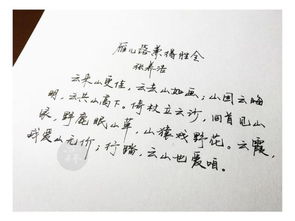 雁儿落兼得胜令
张养浩
云来山更佳，云去山如画；山因云晦
明，云共山高下。倚杖立云沙，回首见山
家，野鹿眠山草，山猿戏野花。云霞，
我爱山无价；行踏，云山也爱咱。